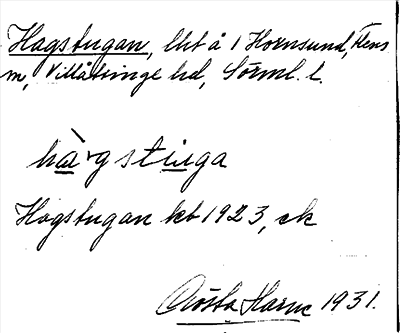 Hagstugan, lht å 1 Hornsund, Flens
sn, Villåttinge hd, Sörml. l.
hàgstuga
Hagstugan kb 1923, ek
Gösta Harm 1931.